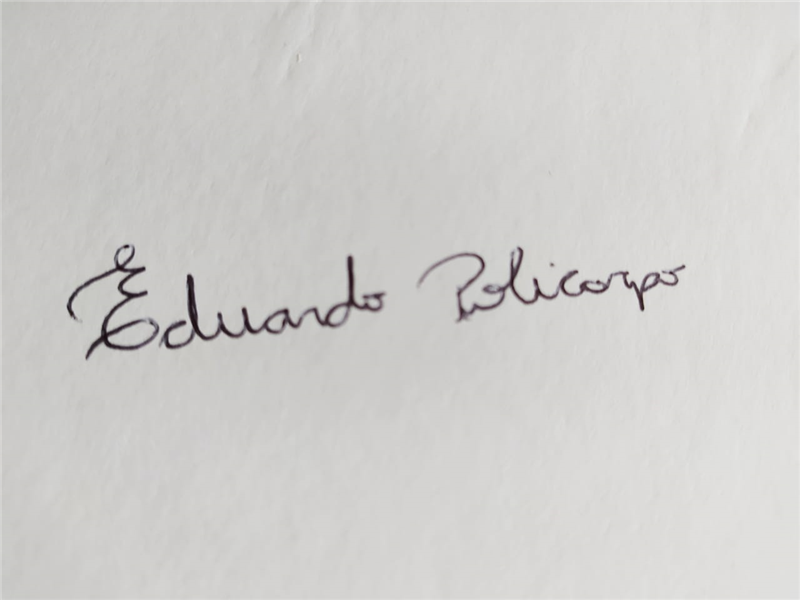 Eduardo Policarpo